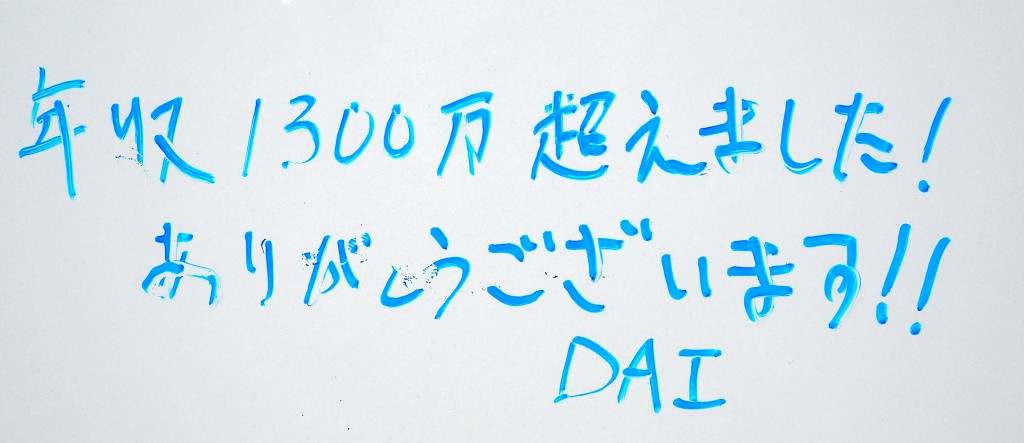 年収1300万超えました!
ありがとうございます!!
DAI